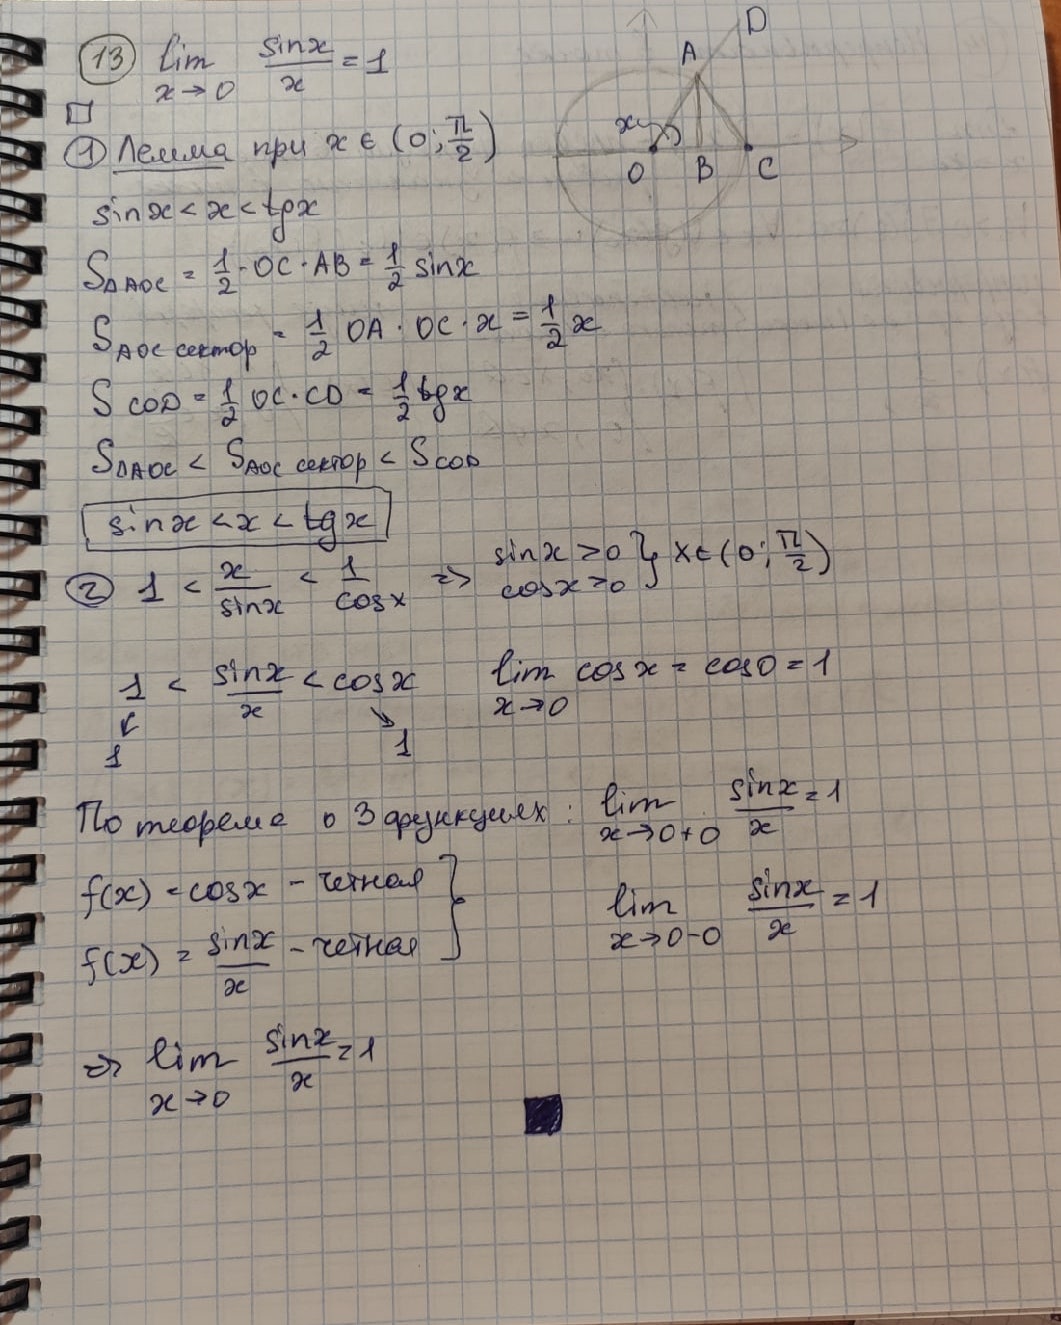 13 lim x→0 sinx/x = 1
① Лемма при x ∈ (0; π/2)
sinx < x < tgx
S△AOC = 1/2 · OC · AB = 1/2 sinx
S AOC сектор = 1/2 OA · OC · x = 1/2 x
S COD = 1/2 OC · CD = 1/2 tgx
S△AOC < S AOC сектор < S COD
sinx < x < tgx
② 1 < x/sinx < 1/cosx => sinx > 0 cosx > 0 } x ∈ (0; π/2)
1 < sinx/x < cosx lim x→0 cosx = cos0 = 1
1 1
По теореме о 3 функциях: lim x→0+0 sinx/x = 1
f(x) = cosx - чётная
f(x) = sinx/x - чётная } lim x→0-0 sinx/x = 1
=> lim x→0 sinx/x = 1
D
A
x
O B C